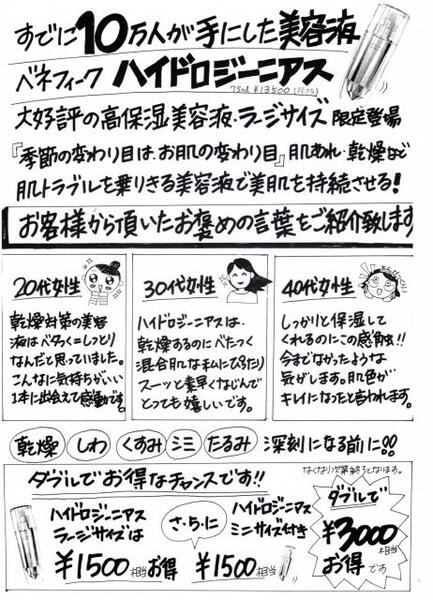 すでに10万人が手にした美容液
ベネフィーク ハイドロジーニアス
75ml ¥13500(税抜)
大好評の高保湿美容液・ラージサイズ 限定登場
『季節の変わり目は、お肌の変わり目』肌あれ・乾燥など
肌トラブルを乗りきる美容液で美肌を持続させる!
お客様から頂いたお褒めの言葉をご紹介致します
20代女性
乾燥対策の美容
液はべたつく=しっとり
なんだと思っていました。
こんなに気持ちがいい
1本に出会えて感動です。
30代女性
ハイドロジーニアスは、
乾燥するのにべたつく
混合肌な私にぴったり
スーッと素早くなじんで
とっても嬉しいです。
40代女性
しっかりと保湿して
くれるのにこの感触!!
今までなかったような
気がします。肌色が
キレイになったと言われます。
乾燥 しわ くすみ シミ たるみ 深刻になる前に!!
なくなり次第終了となります。
ダブルでお得なチャンスです!!
ハイドロジーニアス
ラージサイズは
¥1500相当お得
さ・ら・に
ハイドロジーニアス
ミニサイズ付き
¥1500相当
ダブルで
¥3000
相当
お得です